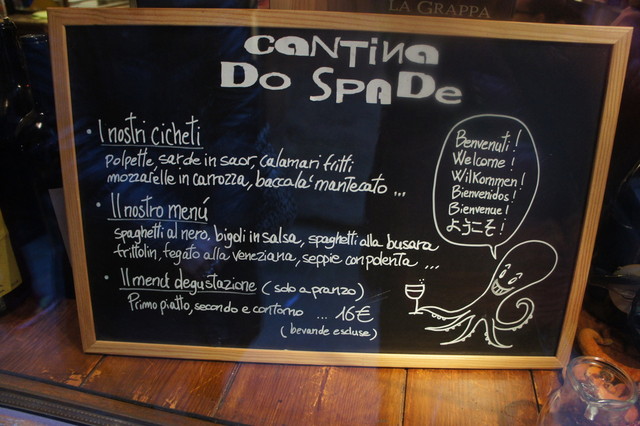 LA GRAPPA
CANTINA
DO SPADE
• I nostri cicheti
polpette, sarde in saor, calamari fritti
mozzarelle in carrozza, baccala' mantecato ...
• Il nostro menú
spaghetti al nero, bigoli in salsa, spaghetti alla busara
frittolin, fegato alla veneziana, seppie con polenta ...
• Il menú degustazione (solo a pranzo)
Primo piatto, secondo e contorno ... 16€
(bevande escluse)
Benvenuti!
Welcome!
Wilkommen!
Bienvenidos!
Bienvenue!
ようこそ!